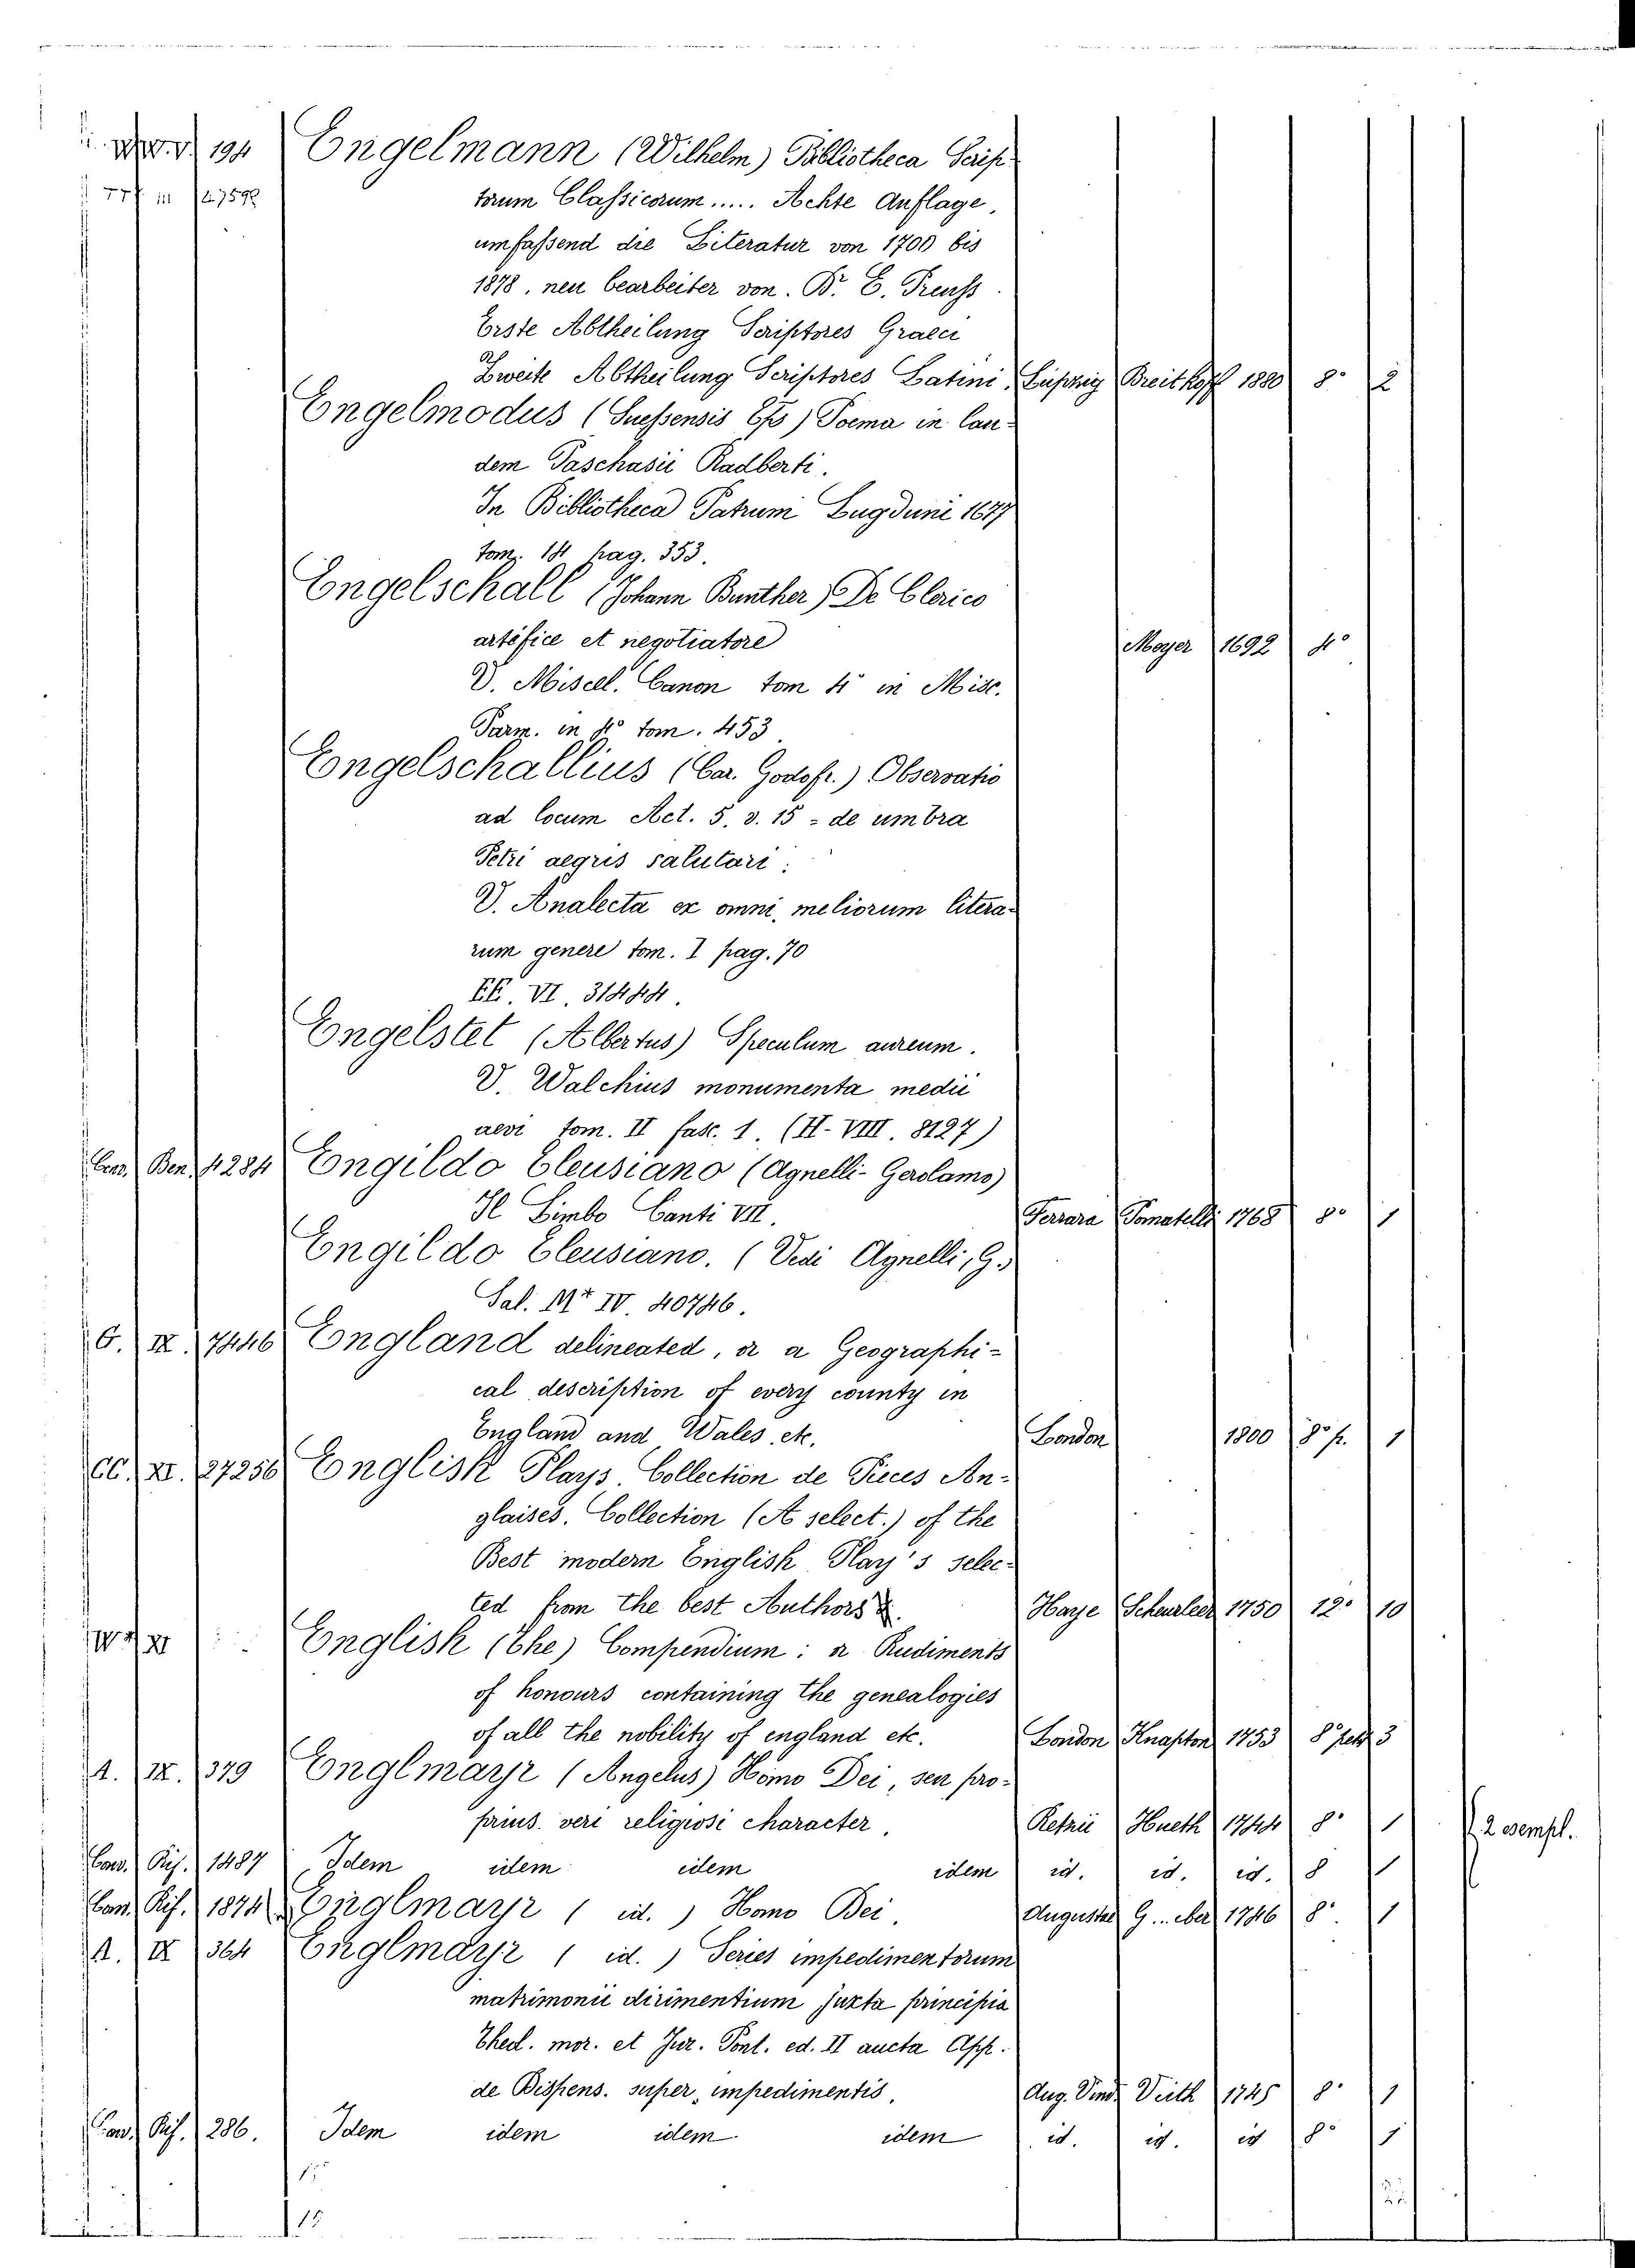 V. 194 Engelmann (Wilhelm) Bibliotheca Scrip
in 27592 torum Classicorum..... Achte Auflage,
umfassend die Literatur von 1700 bis
1878, neu bearbeiter von. Dr. E. Preuss.
Erste Abtheilung Scriptores Graeci
Zweite Abtheilung Scriptores Latini, Lipzig Breitkoff 1880 8° 2
Engelmodus (Suessensis Eps) Poema in lau-
dem Paschasii Radberti.
In Bibliotheca Patrum Lugduni 1677
tom. 14 pag. 353.
Engelschall (Johann Bunther) De Clerico
artéfice et negotiatore Meyer 1692 4°
V. Miscel. Canon tom 4° in Misc.
Parm. in 4° tom. 453.
Engelschallius (Car. Godofr.) Observatio
ad locum Act. 5. v. 15 = de umbra
Petri aegris salutari:
V. Analecta ex omni, meliorum litera-
rum genere tom. I pag. 70
EE. VI. 31444.
Engelstet (Albertus) Speculum aureum.
V. Walchius monumenta medii
aevi tom. II fasc. 1. (H. VIII. 8127)
Cas. Ben. 4284 Engildo Eleusiano (Agnelli-Gerolamo)
Il Limbo Canti VII. Ferrara Pomatelli 1768 8° 1
Engildo Eleusiano. (Vedi Agnelli, G.)
Sal. Mr IV. 40746.
G. IX. 7446 England delineated, or a Geographi-
cal description of every county in
England and Wales. etc. London 1800 8° p. 1
CC. XI. 27256 English Plays. Collection de Pieces An-
glaises. Collection (A select.) of the
Best modern English Play's selec-
ted from the best Authors &. Haye Scheurleer 1750 12° 10
English (The) Compendium: or Rudiments
of honours containing the genealogies
of all the nobility of england etc. London Knapton 1753 8° pet 3
A. IX. 379 Englmayr (Angelus) Homo Dei, seu pro-
prius. veri religiosi character. Retzii Hueth 1744 8° 1 2 esempl.
Cas. Rif. 1487 Idem idem idem idem id. id. id. 8 1
Cas. Rif. 1874 Englmayr (id.) Homo Dei. Augustae G... eber 1746 8° 1
A. IX 364 Englmayr (id.) Series impedimentorum
matrimonii dirimentium juxta principia
Theol. mor. et Jur. Pont. ed. II aucta App.
de Dispens. super, impedimentis. Aug. Vind. Veith 1745 8° 1
Cas. Rif. 286. Idem idem idem idem id. id. id 8° 1
15
15